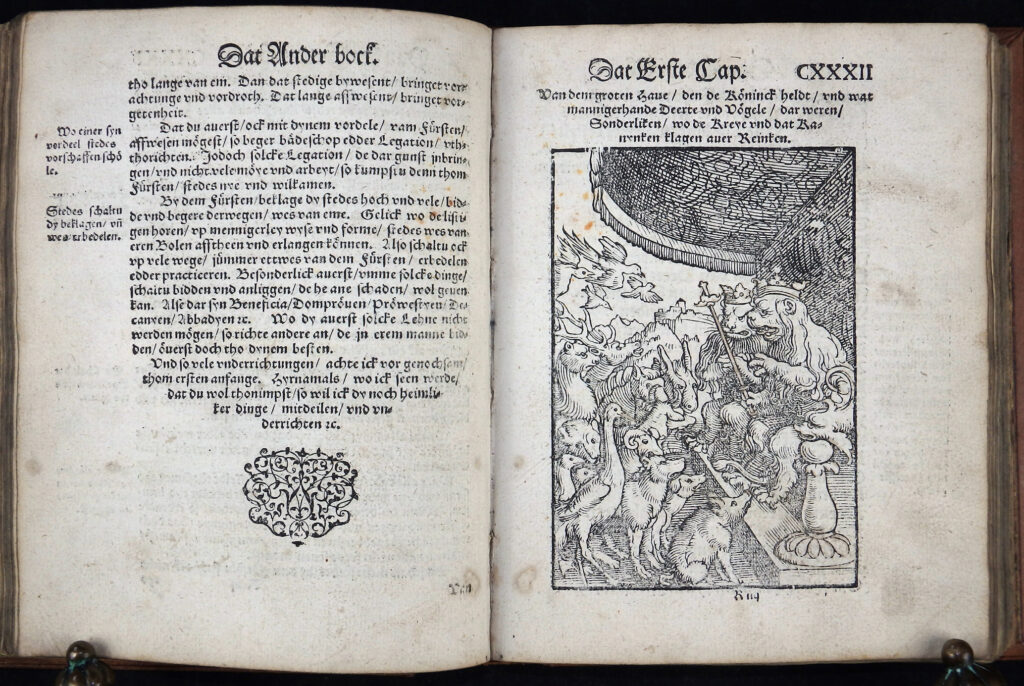 Dat Ander bock.
tho lange van em. Dan dat stedige bywesent/ bringet vor-
achtunge vnd vordroth. Dat lange aff wesent/ bringet vor-
getenheit.
Wo einer syn
vordeel stedes
vorschaffen schö
le.
Dat du auerst/ ock mit dynem vordele/ vam Fürsten/
affwesen mögest/ so beger bådeschop edder Legation/ vth-
thorichten. Jodoch solcke Legation/ de dar gunst inbrin-
gen/ vnd nicht vele möye vnd arbeyt/ so kumpstu denn thom
Fürsten/ stedes nye vnd wilkamen.
Stedes schaltu
dy beklagen/ vñ
wes erbedelen.
By dem Fürsten/ beklage dy stedes hoch vnd vele/ bid-
de vnd begere derwegen/ wes van eme. Gelick wo de listi-
gen horen/ vp mennigerley wyse vnd forme/ stedes wes van
eren Bolen afftheen vnd erlangen können. Also schaltu ock
vp vele wege/ jümmer ettwes van dem Fürsten/ erbedelen
edder practiceren. Besonderlick auerst/ vmme solcke dinge/
schaltu bidden vnd anliggen/ de he ane schaden/ wol geuen
kan. Alse dar syn Beneficia/ Dompröuen/ Pröwestyen/ De-
canyen/ Abbadyen ꝛc. Wo dy auerst solcke Lehne nicht
werden mögen/ so richte andere an/ de in erem namme bid-
den/ öuerst doch tho dynem besten.
Vnd so vele vnderrichtungen/ achte ick vor genochsam/
thom ersten anfange. Hyrnamals/ wo ick seen werde/
dat du wol thonimpst/ so wil ick dy noch heimli-
ker dinge/ mitdeilen/ vnd vn-
derrichten ꝛc.
Dat Erste Cap. CXXXII
Van dem groten Haue/ den de Köninck heldt/ vnd wat
mannigerhande Deerte vnd Vögele/ dar weren/
Sonderliken/ wo de Kreye vnd dat Ka-
nynken klagen auer Reinken.
R iiij